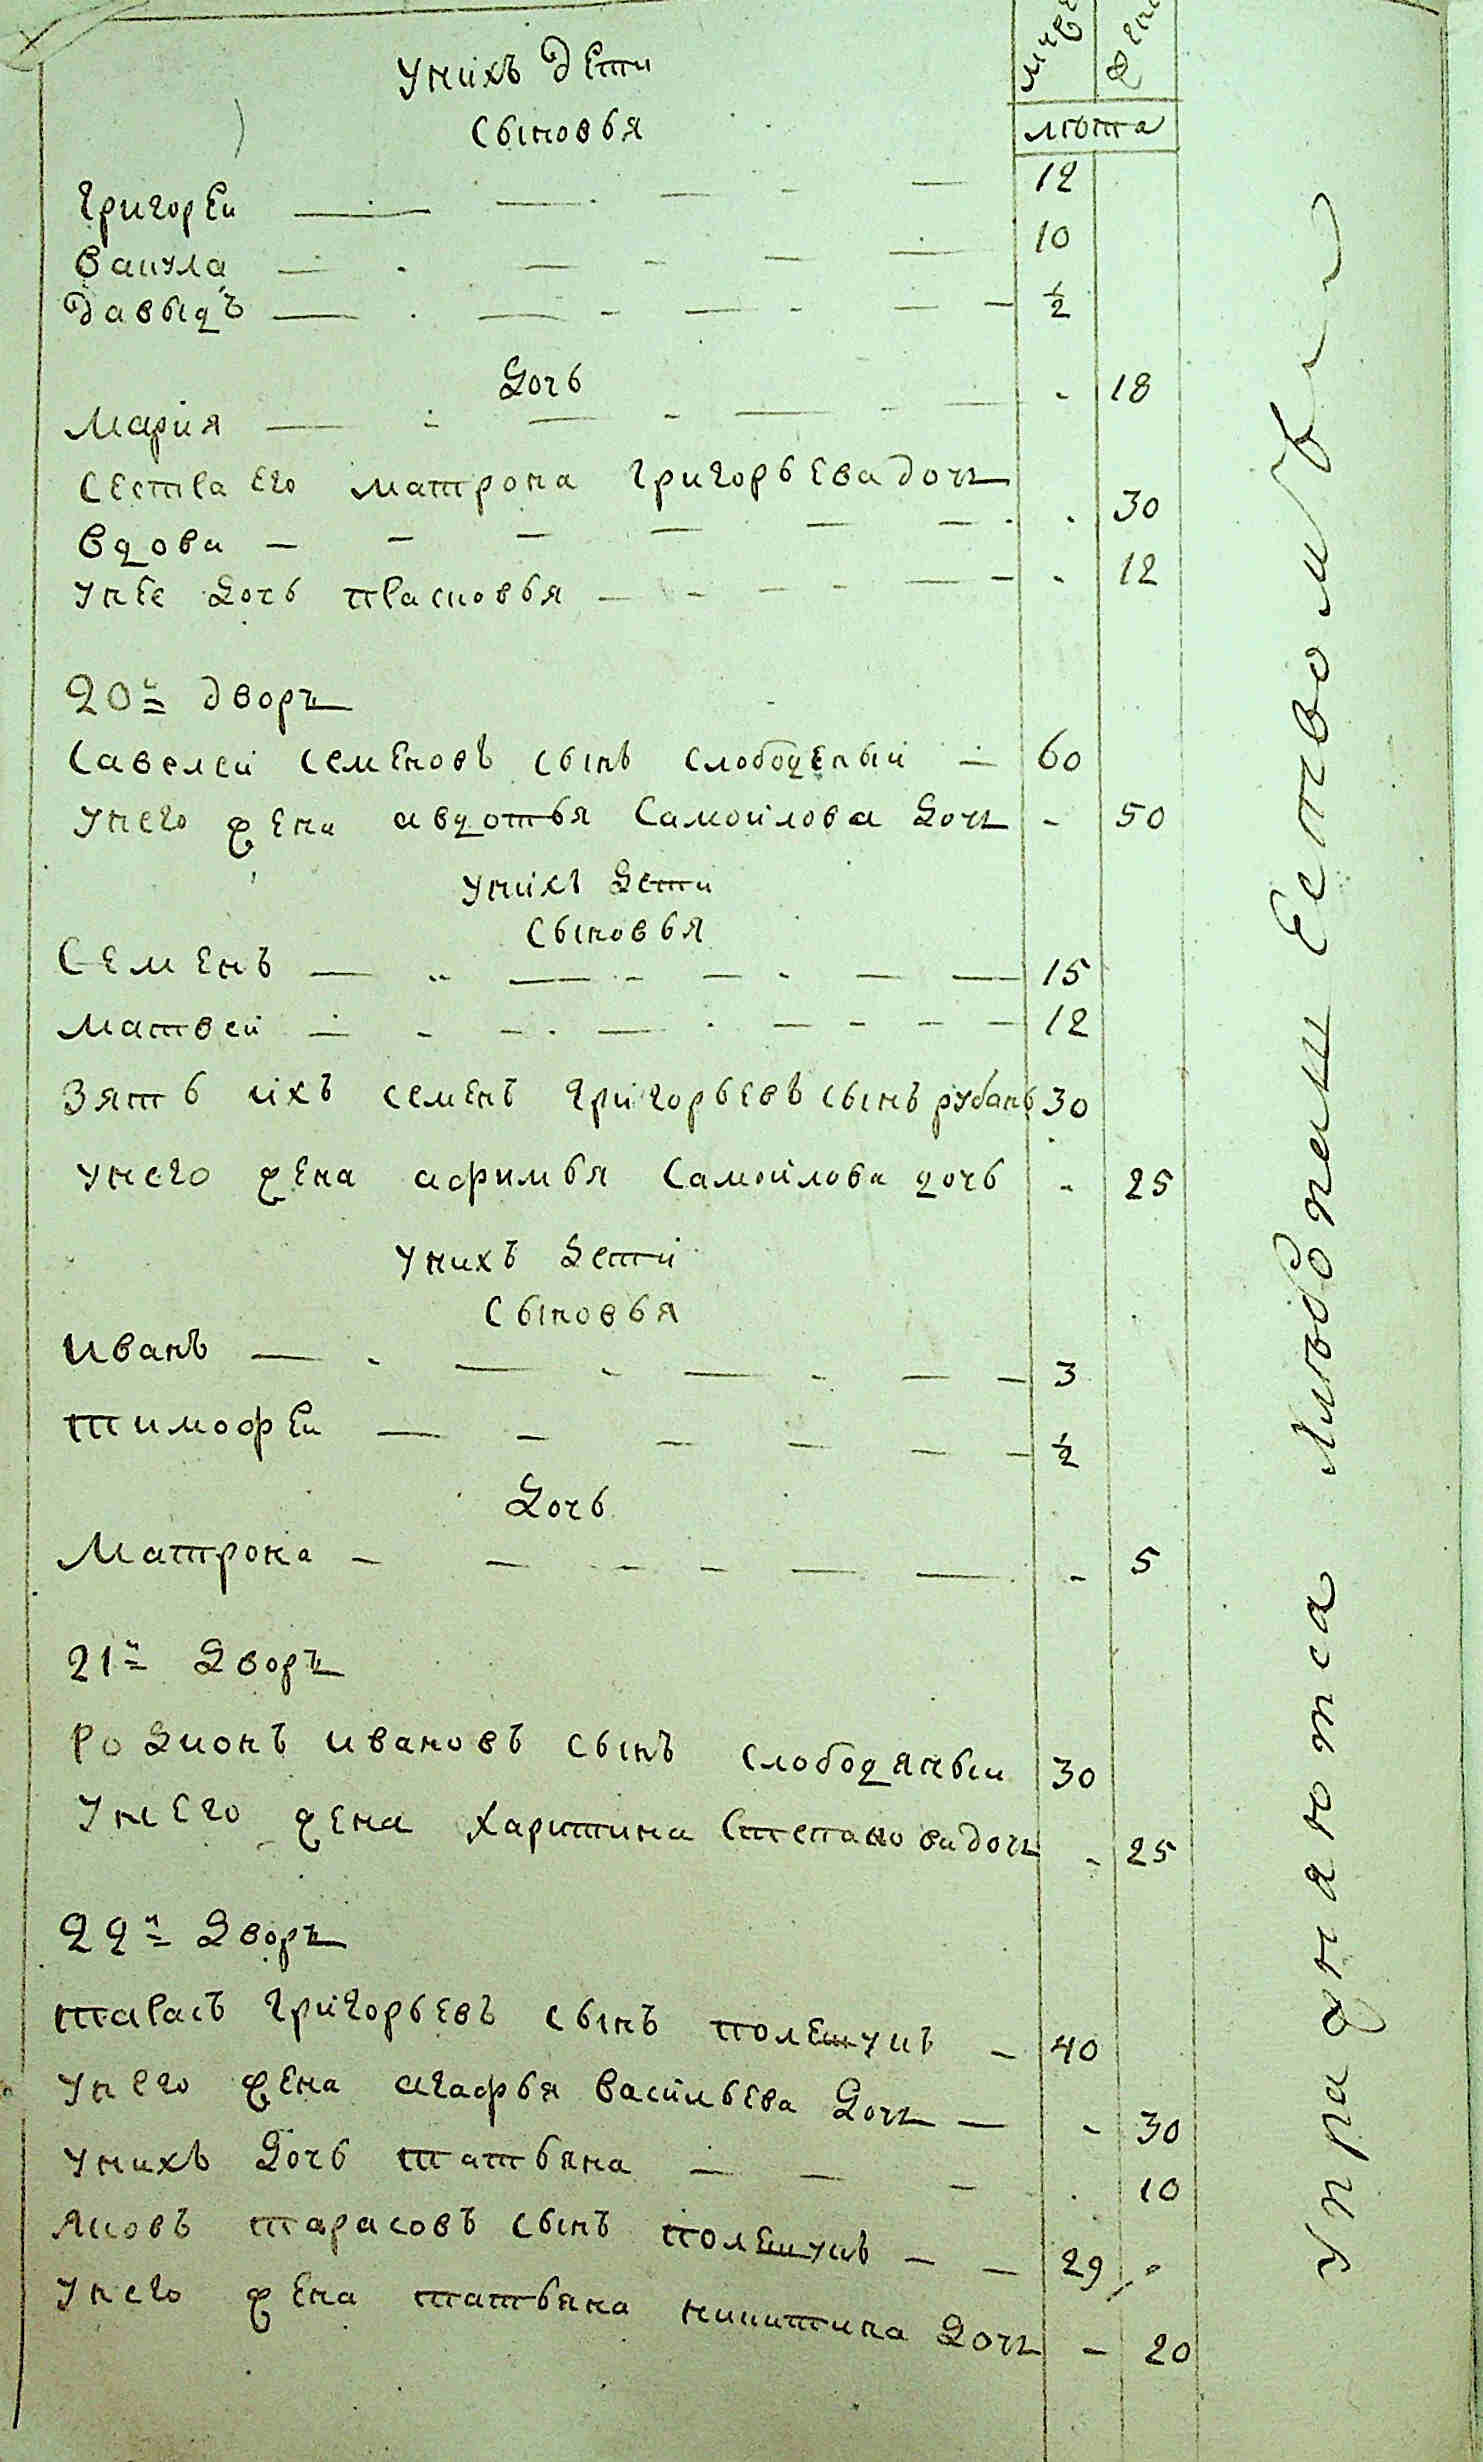 унихъ дети
сыновья
лѣта
григорей 12
вакула 10
давыдъ ½
дочь
Мария 18
сестра его матрона григорьева дочь
вдова 30
унее дочь прасковья 12
20й дворъ
савелей семеновъ сынъ слободеный 60
унего жена авдотья самойлова дочь 50
унихъ дети
сыновья
семенъ 15
матвей 12
зять ихъ семенъ григорьевъ сынъ рубанъ 30
унего жена афимья самойлова дочь 25
унихъ дети
сыновья
иванъ 3
тимофей ½
дочь
Матрона 5
21й дворъ
родионъ ивановъ сынъ слободяный 30
унего жена харитина степанова дочь 25
22й дворъ
тарасъ григорьевъ сынъ полешукъ 40
унего жена агафья васильева дочь 30
унихъ дочь татьяна 10
яковъ тарасовъ сынъ полешукъ 29
унего жена татьяна никитина дочь 20
упражняются хлебопашественѣ